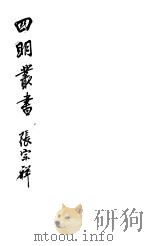 四明叢書
張宗祥
研狗
mtoou.info